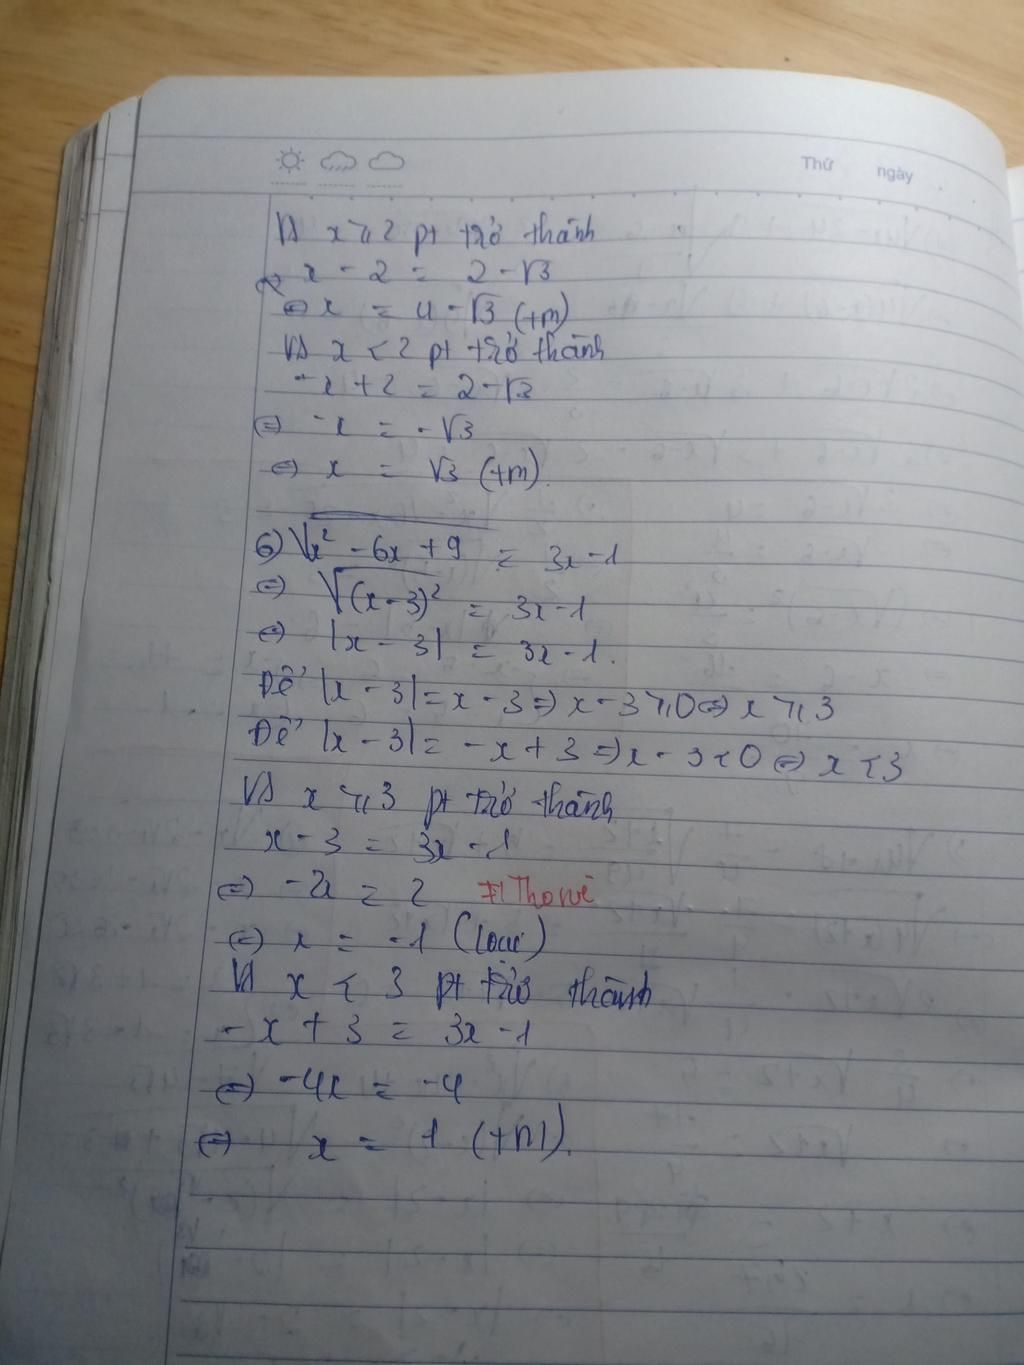 Thứ ngày
Với x ≥ 2 pt trở thành
x - 2 = 2 - √3
⇔ x = 4 - √3 (tm)
Với x < 2 pt trở thành
- x + 2 = 2 - √3
⇔ - x = - √3
⇔ x = √3 (tm).
6) √x² - 6x + 9 = 3x - 1
⇔ √(x - 3)² = 3x - 1
⇔ |x - 3| = 3x - 1.
Để |x - 3| = x - 3 ⇒ x - 3 ≥ 0 ⇔ x ≥ 3
Để |x - 3| = - x + 3 ⇒ x - 3 < 0 ⇔ x < 3
Với x ≥ 3 pt trở thành
x - 3 = 3x - 1
⇔ - 2x = 2
⇔ x = - 1 (loại)
Với x < 3 pt trở thành
- x + 3 = 3x - 1
⇔ - 4x = - 4
⇔ x = 1 (tm).